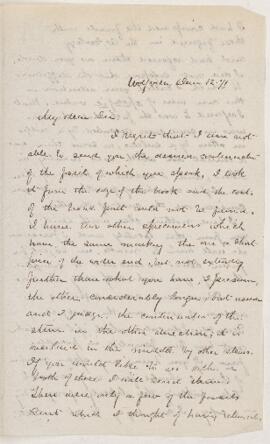 Wolfville Jan 12. 71
My dear Sir
I regret that I am not
able to send you the desired continuation
of the fossil of which you speak, I took
it from the edge of the rock and the rest
of the frond could not be found.
I have two other specimens which
have the same marking the one a short
piece of the wider end, but not extending
further than what you have, I presume,
the other, considerably longer, but narrow
and I judge, the continuation of the
stem in the other direction; it is
in the middle by other stems.
If you would like to see either or
both of these I will send them.
There were only a few of the fossils
sent which I thought of having returned,